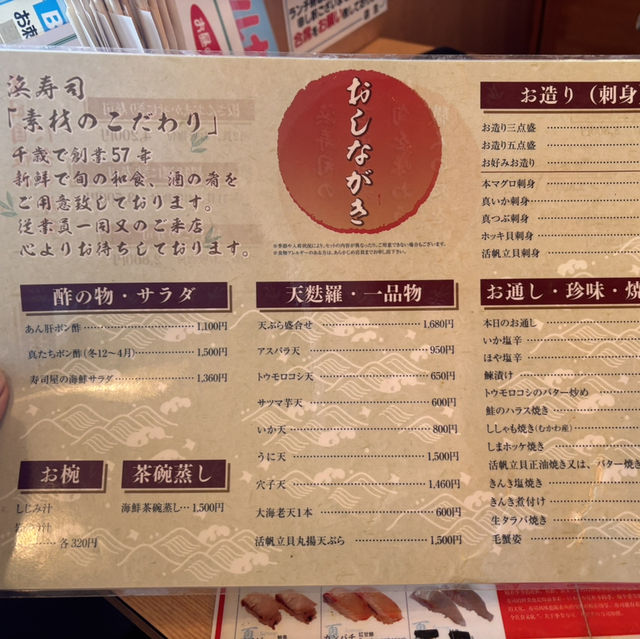 浜寿司
「素材のこだわり」
千歳で創業57年
新鮮で旬の和食、酒の肴を
ご用意致しております。
従業員一同又のご来店
心よりお待ちしております。
おしながき
※季節や入荷状況により、セットの内容が異なったり、ご用意できない場合もございます。
※食物アレルギーのある方は、あらかじめ店員までお申し出下さい。
お造り(刺身)
お造り三点盛
お造り五点盛
お好みお造り
本マグロ刺身
真いか刺身
真つぶ刺身
ホッキ貝刺身
活帆立貝刺身
酢の物・サラダ
あん肝ポン酢 1,100円
真たちポン酢(冬12〜4月) 1,500円
寿司屋の海鮮サラダ 1,360円
お椀
しじみ汁
各320円
茶碗蒸し
海鮮茶碗蒸し 1,500円
天麩羅・一品物
天ぷら盛合せ 1,680円
アスパラ天 950円
トウモロコシ天 650円
サツマ芋天 600円
いか天 800円
うに天 1,500円
穴子天 1,460円
大海老天1本 600円
活帆立貝丸揚天ぷら 1,500円
お通し・珍味・焼
本日のお通し
いか塩辛
ほや塩辛
鰊漬け
トウモロコシのバター炒め
鮭のハラス焼き
ししゃも焼き(むかわ産)
しまホッケ焼き
活帆立貝正油焼き又は、バター焼き
きんき塩焼き
きんき煮付け
生タラバ焼き
毛蟹姿